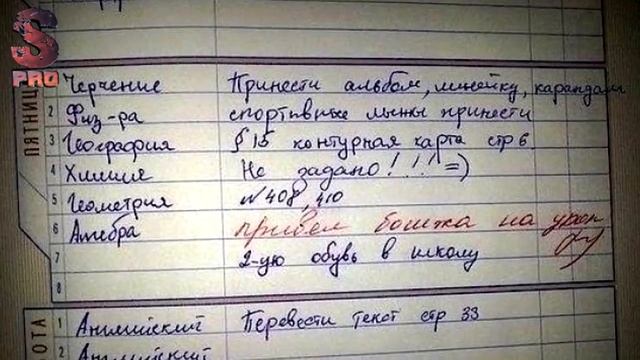 S
PRO
ПЯТНИЦ
1 Черчение Принести альбом, линейку, карандаш
2 Физ-ра спортивные лыжы принести
3 География § 15 контурная карта стр 6
4 Химия Не задано!!!! =)
5 Геометрия №408, 410
6 Алгебра привёл бомжа на урок
7 2-ую обувь в школу
8
ОТА
1 Английский Перевести текст стр 33
2 Английский